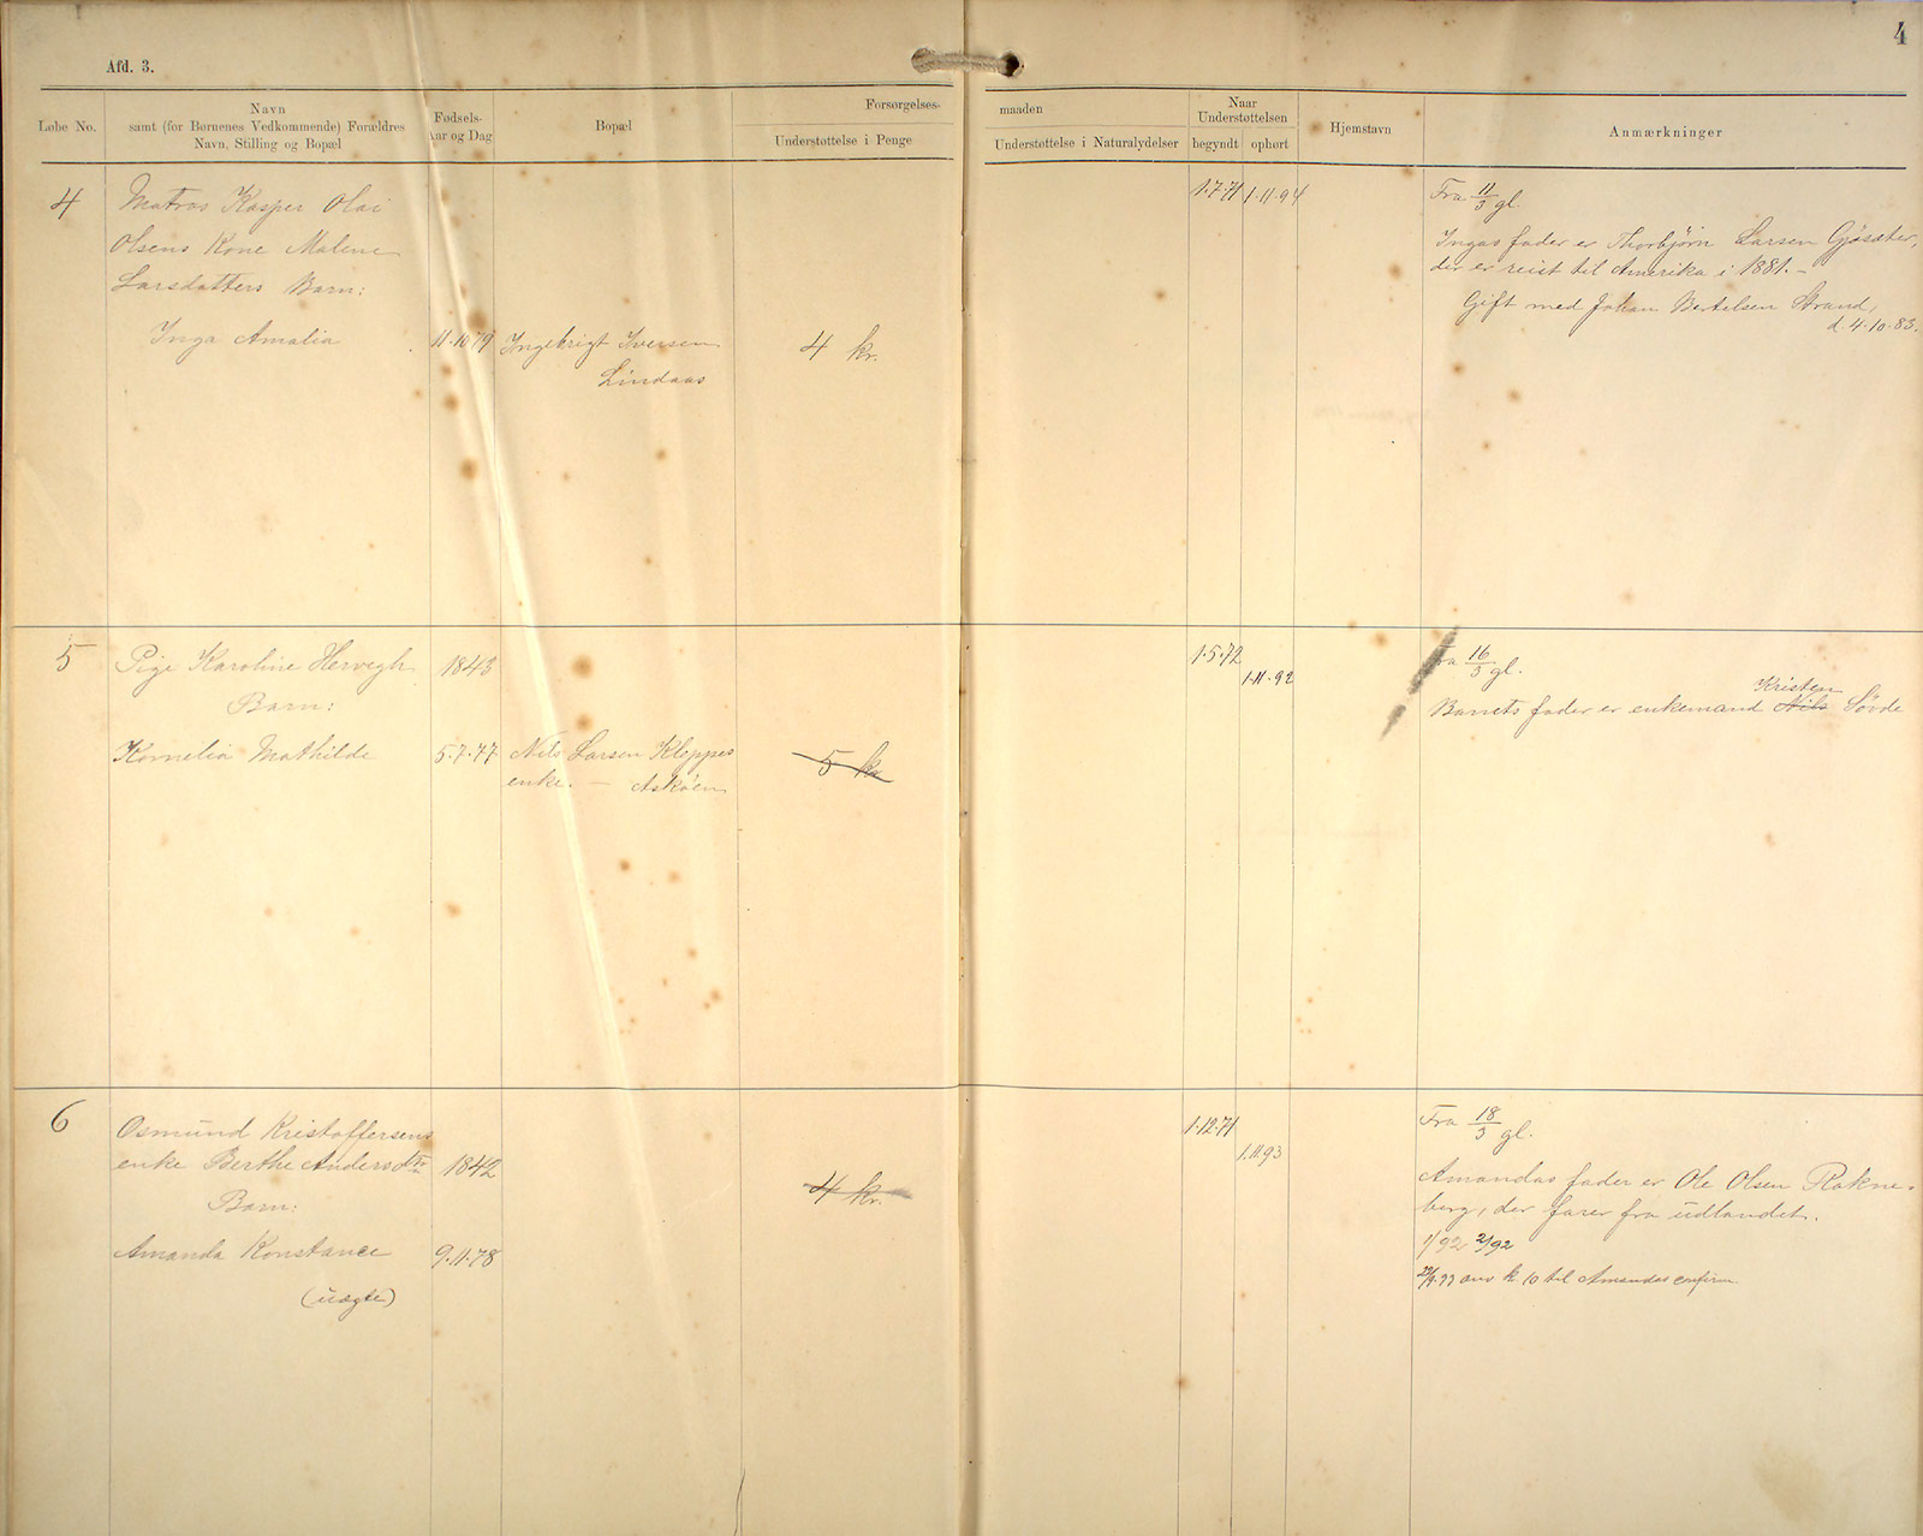 4
Afd. 3.
Løbe No.
Navn
samt (for Børnenes Vedkommende) Forældres
Navn, Stilling og Bopæl
Fødsels-
Aar og Dag
Bopæl
Forsørgelses-
Understøttelse i Penge
maaden
Understøttelse i Naturalydelser
Naar
Understøttelsen
begyndt
ophørt
Hjemstavn
Anmærkninger
4
Matros Kasper Olai
Olsens Kone Malene
Larsdatters Barn:
Inga Amalia
11.10 79
Ingebrigt Iversen
Lindaas
4 kr.
1.7.71
1.11.94
Fra 11/3 gl.
Ingas fader er Thorbjörn Larsen Gjösæter,
der er reist til Amerika i 1881. -
Gift med Johan Bertelsen Strand,
d. 4.10.83.
5
Pige Karoline Hervegh
1843
Barn:
Kornelia Mathilde
5.7.77
Nils Larsen Kleppes
enke. - Askøen
5 kr
1.5.72
1.11.92
Fra 16/3 gl.
Kristen
Barnets fader er enkemand Nils Sövde
6
Osmund Kristoffersens
enke Berthe Andersdtr
1842
Barn:
Amanda Konstance
9.11.78
(uægte)
4 kr.
1.12.71
1.11.93
Fra 18/3 gl.
Amandas fader er Ole Olsen Rakne-
berg, der farer fra udlandet.
1/92 2/92
anv k 10 til Amandas confirm.